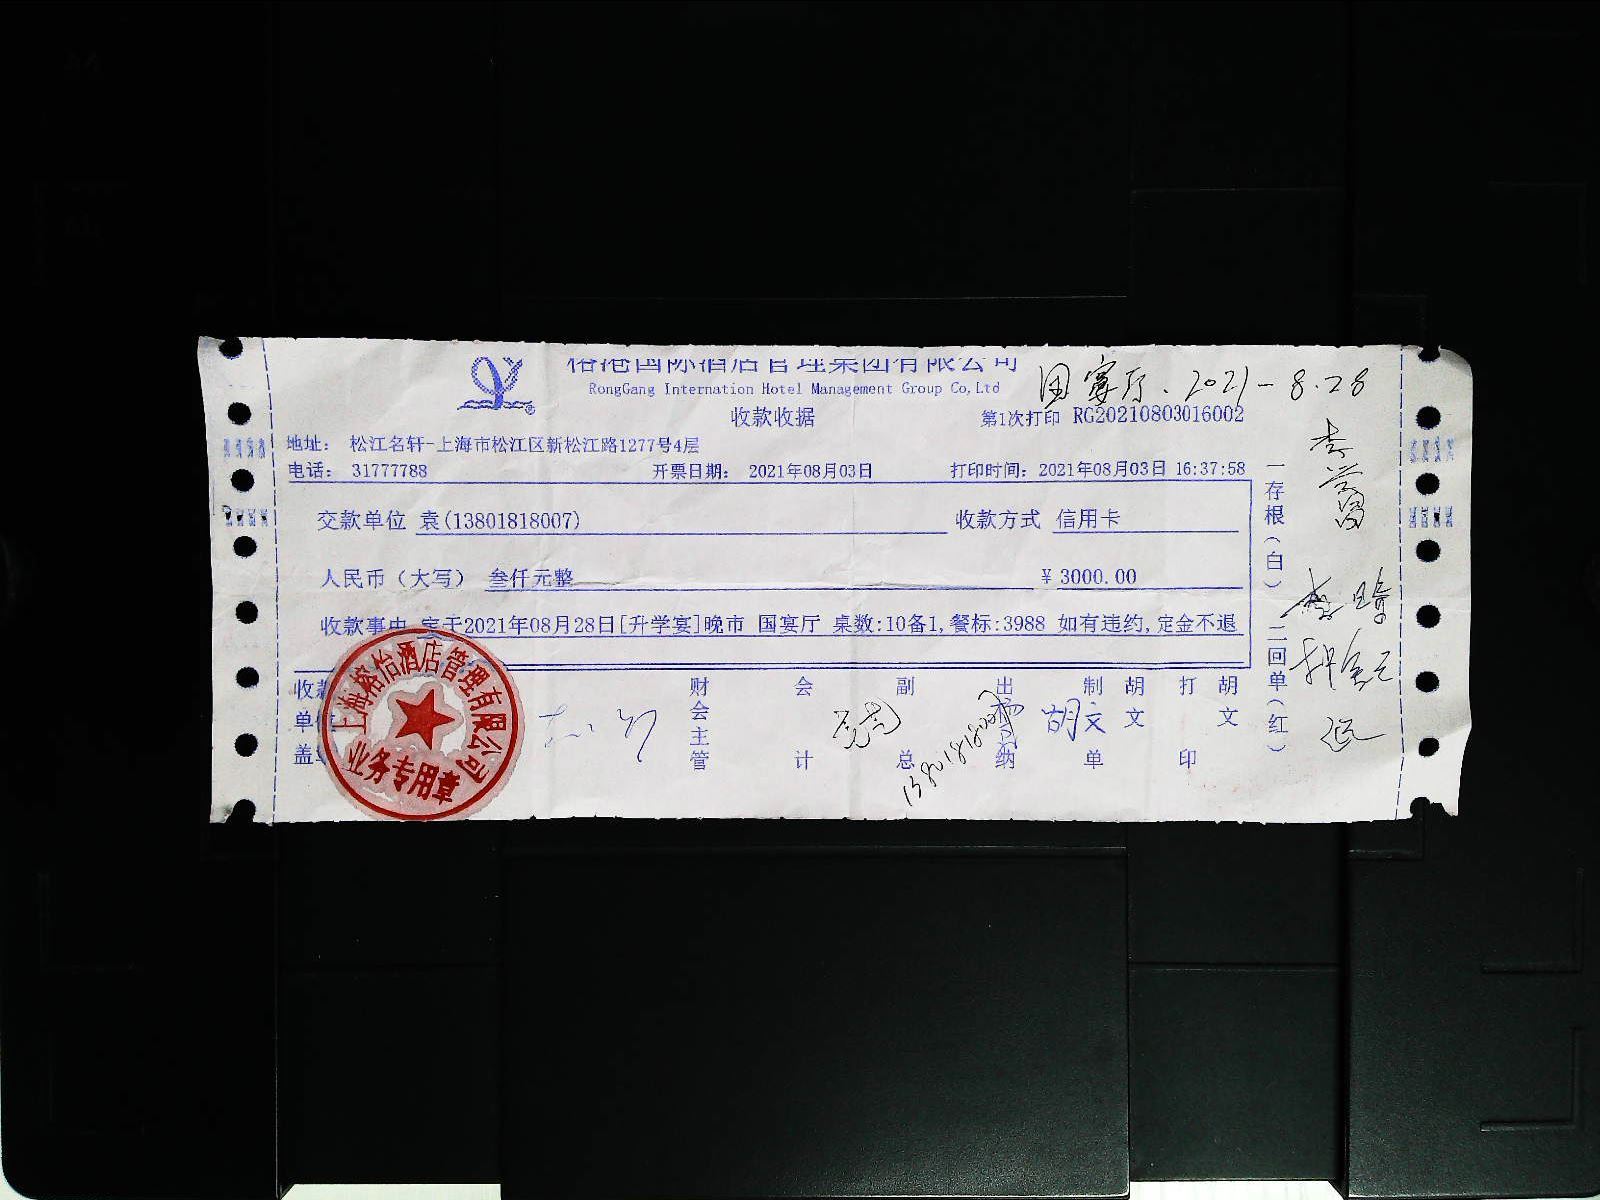 榕港国际酒店管理集团有限公司
RongGang Internation Hotel Management Group Co,Ltd
国宴厅. 2021-8.28
收款收据
第1次打印 RG20210803016002
地址： 松江名轩-上海市松江区新松江路1277号4层
电话： 31777788 开票日期： 2021年08月03日 打印时间：2021年08月03日 16:37:58
交款单位 袁(13801818007) 收款方式 信用卡
人民币（大写） 叁仟元整 ¥ 3000.00
收款事由 定于2021年08月28日[升学宴]晚市 国宴厅 桌数:10备1,餐标:3988 如有违约,定金不退
收款单位盖章
财会主管
会计
副总
出纳
制单 胡文
打印 胡文
胡文
13801818007
上海榕怡酒店管理有限公司
业务专用章
一存根（白）二回单（红）